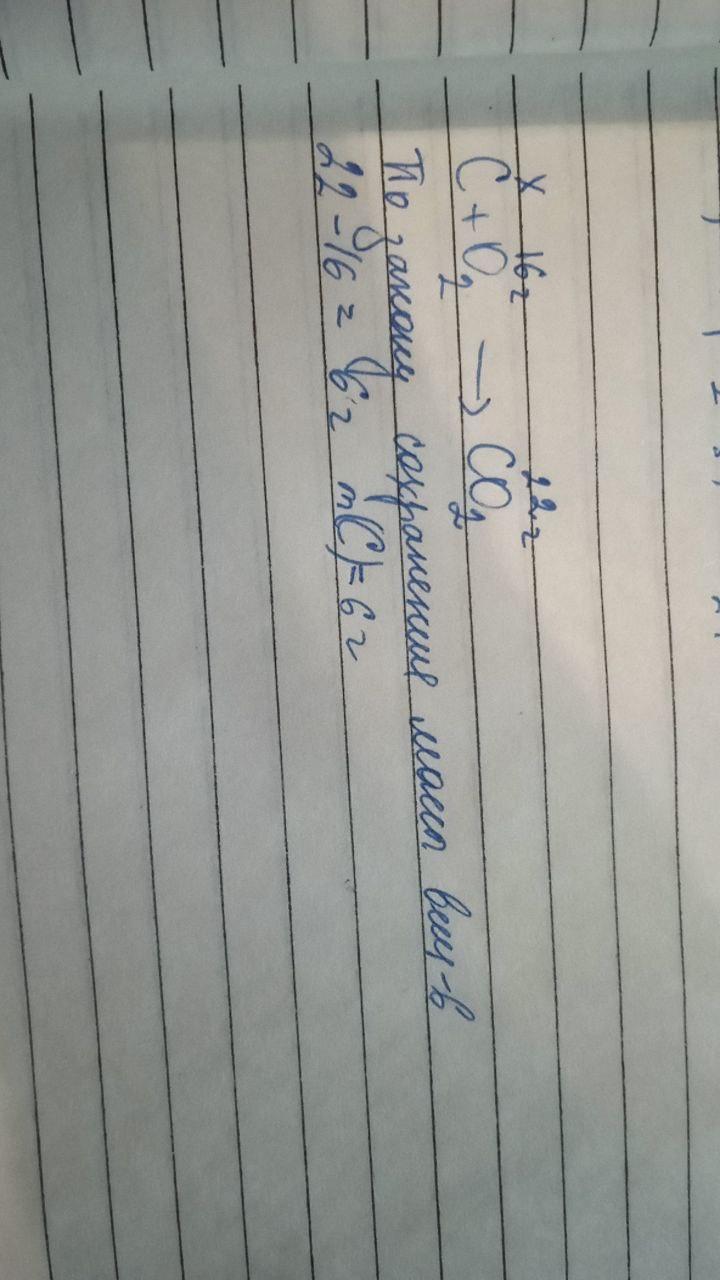 x 16г 22г
C + O2 → CO2
По закону сохранения масс вещ-в
22 - 16 = 6г m(C) = 6г